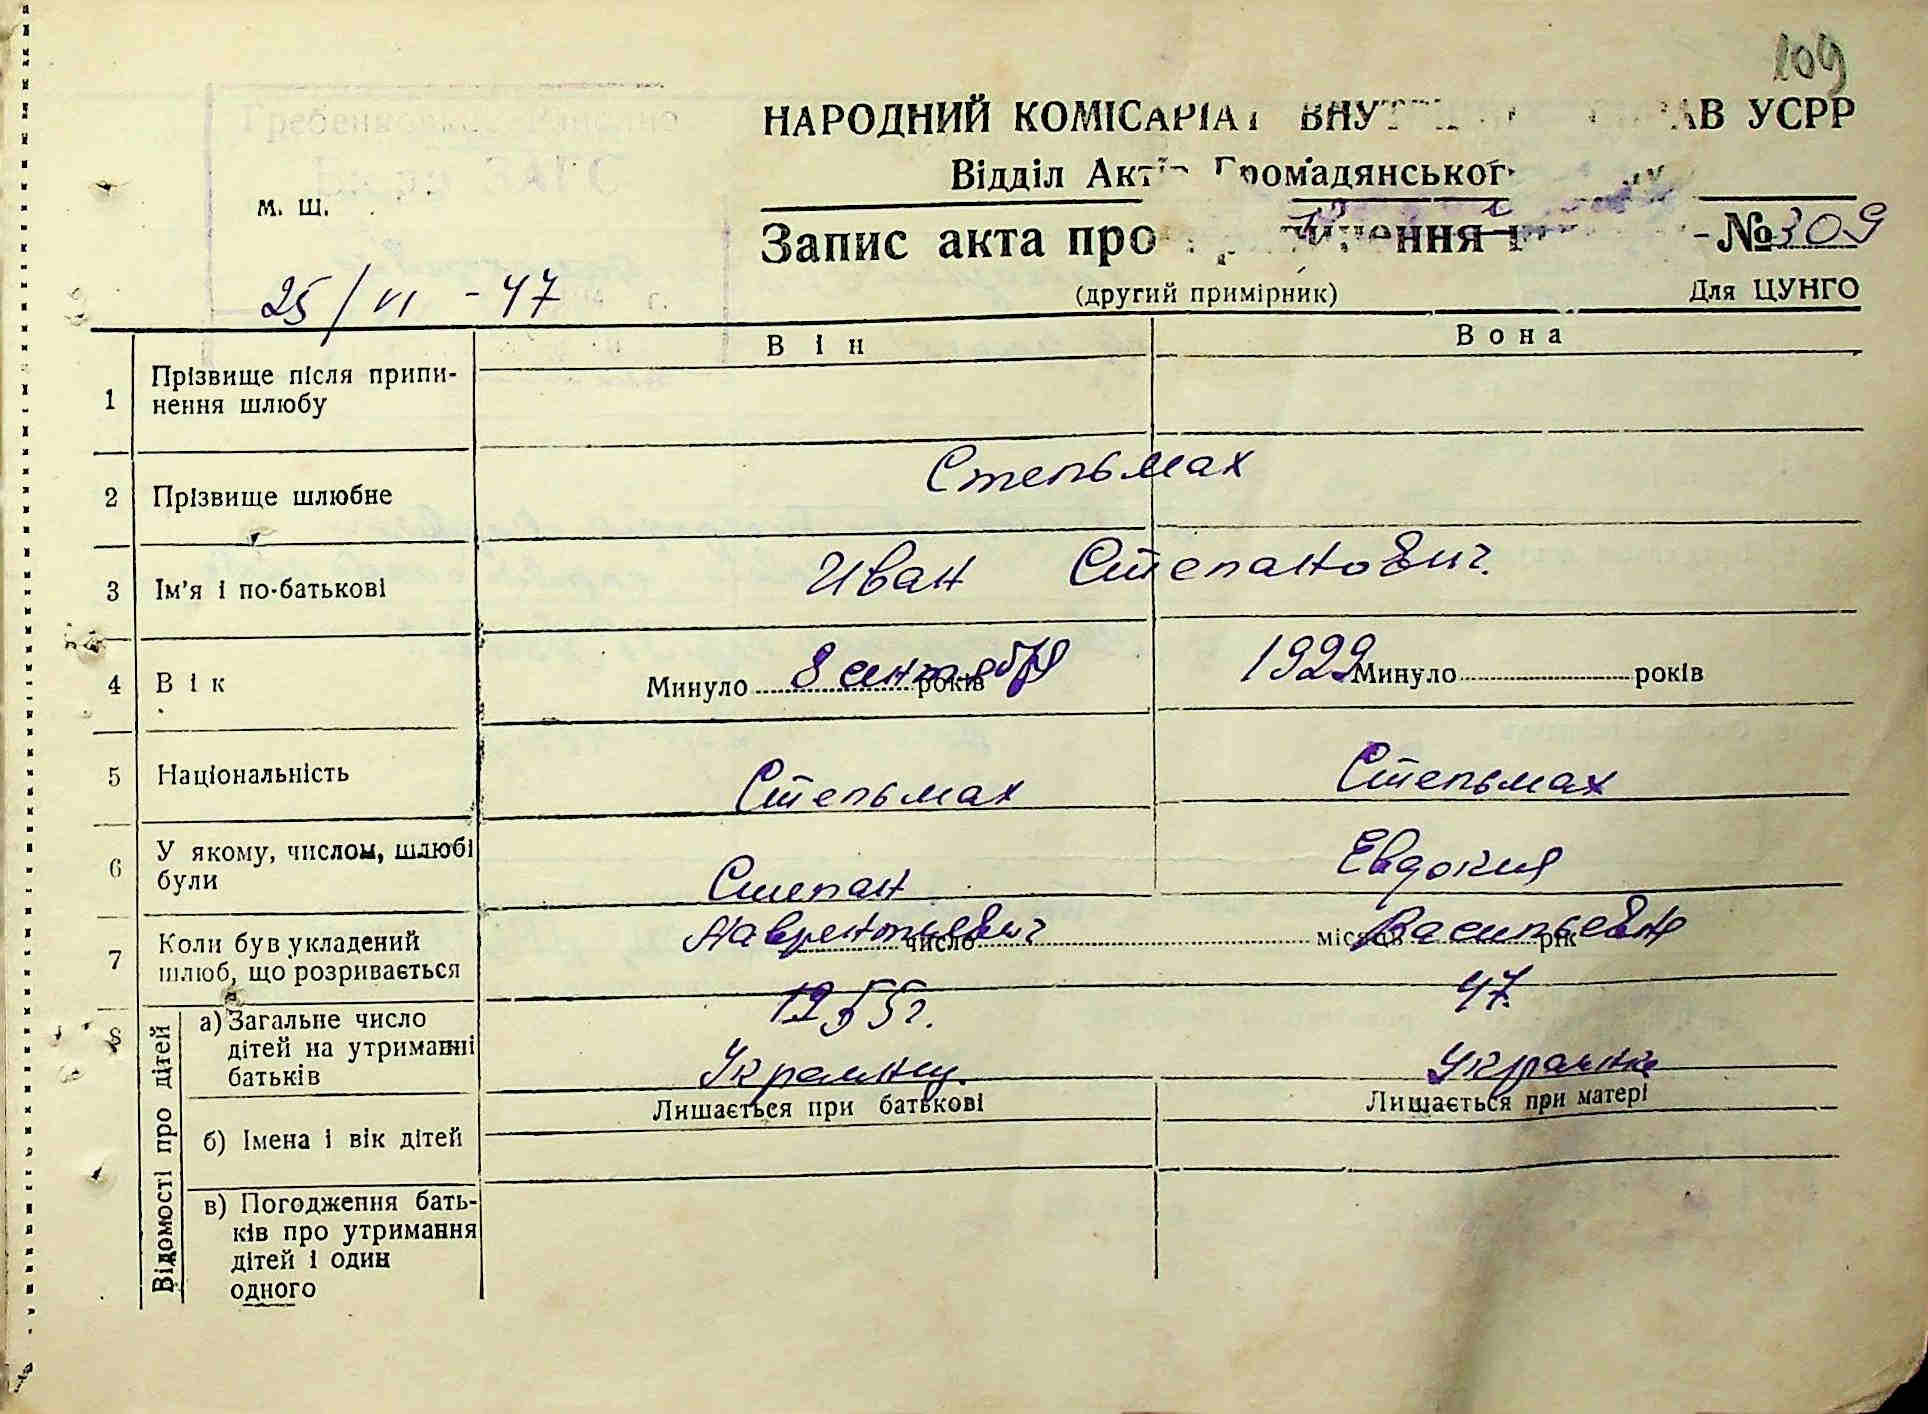 109
НАРОДНИЙ КОМІСАРІАТ УСРР
Відділ Громадянського
м. ш.
Запис акта про № 309
25/VI - 47
(другий примірник) Для ЦУНГО
Він Вона
1 Прізвище після припи-
нення шлюбу
2 Прізвище шлюбне Стельмах
3 Ім'я і по-батькові Иван Степанович.
4 Вік Минуло 8 сентября років 1929 Минуло років
5 Національність Стельмах Стельмах
6 У якому, числом, шлюбі
були Степан Евдокия
7 Коли був укладений
шлюб, що розривається Лаврентьевич число місяць Васильевна рік
8 Відомості про дітей
а) Загальне число
дітей на утриманні
батьків
47.
Украинец. Украинка
Лишається при батькові Лишається при матері
б) Імена і вік дітей
в) Погодження бать-
ків про утримання
дітей і один
одного